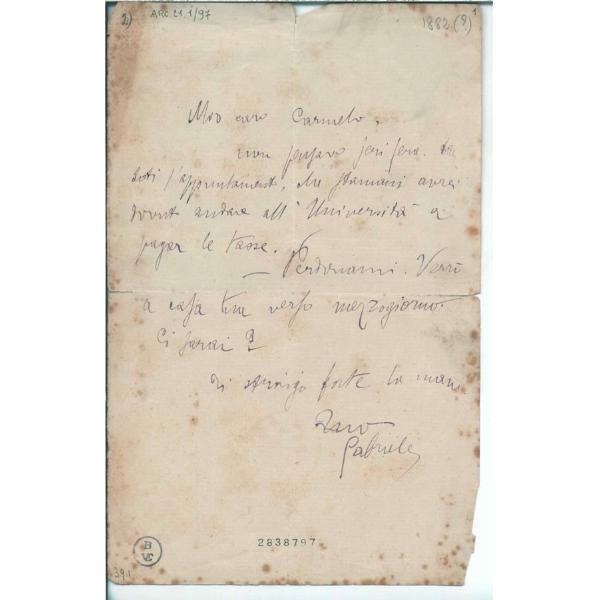 2)
ARC.21.1/97
1882 (?)
1
Mio caro Carmelo,
non pensavo jeri sera, 
doti l'appuntamento, che stamani avrei
dovuto andare all'Università a
pagar le tasse.
— Perdonami. Verrò
a casa tua verso mezzogiorno.
Ci sarai?
Ti stringo forte la mano
Tuo
Gabriele
2838797
BVE
39.1